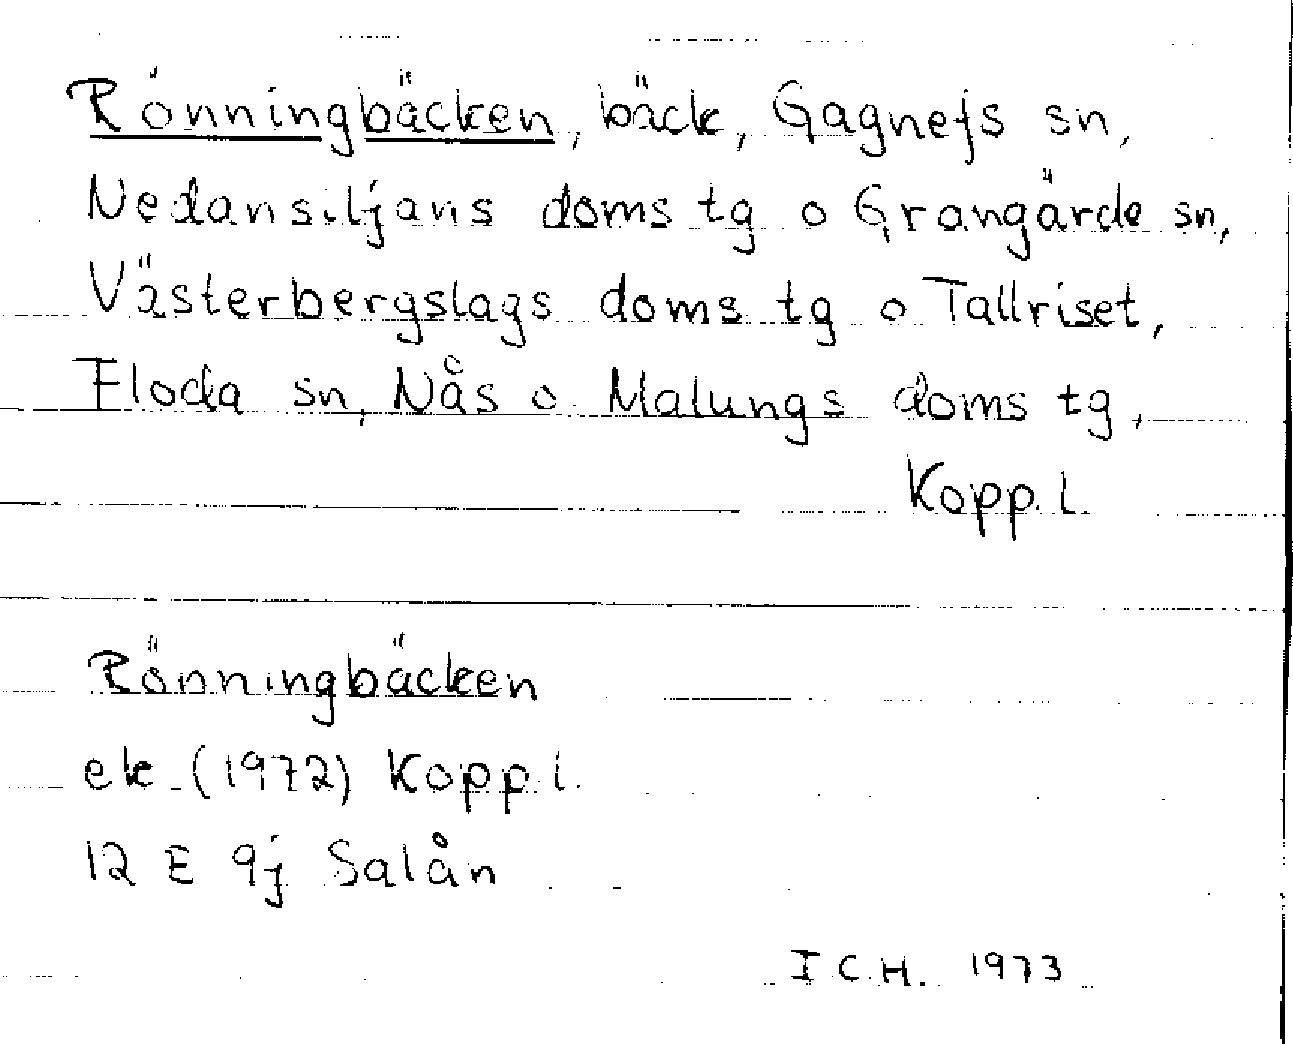 Rönningbäcken, bäck, Gagnefs sn,
Nedansiljans doms tg o Grangärde sn,
Västerbergslags doms tg o Tallriset,
Floda sn, Nås o Malungs doms tg,
Kopp. l.
Rönningbäcken
ek. (1972) Kopp. l.
12 E 9j Salån
I C.H. 1973